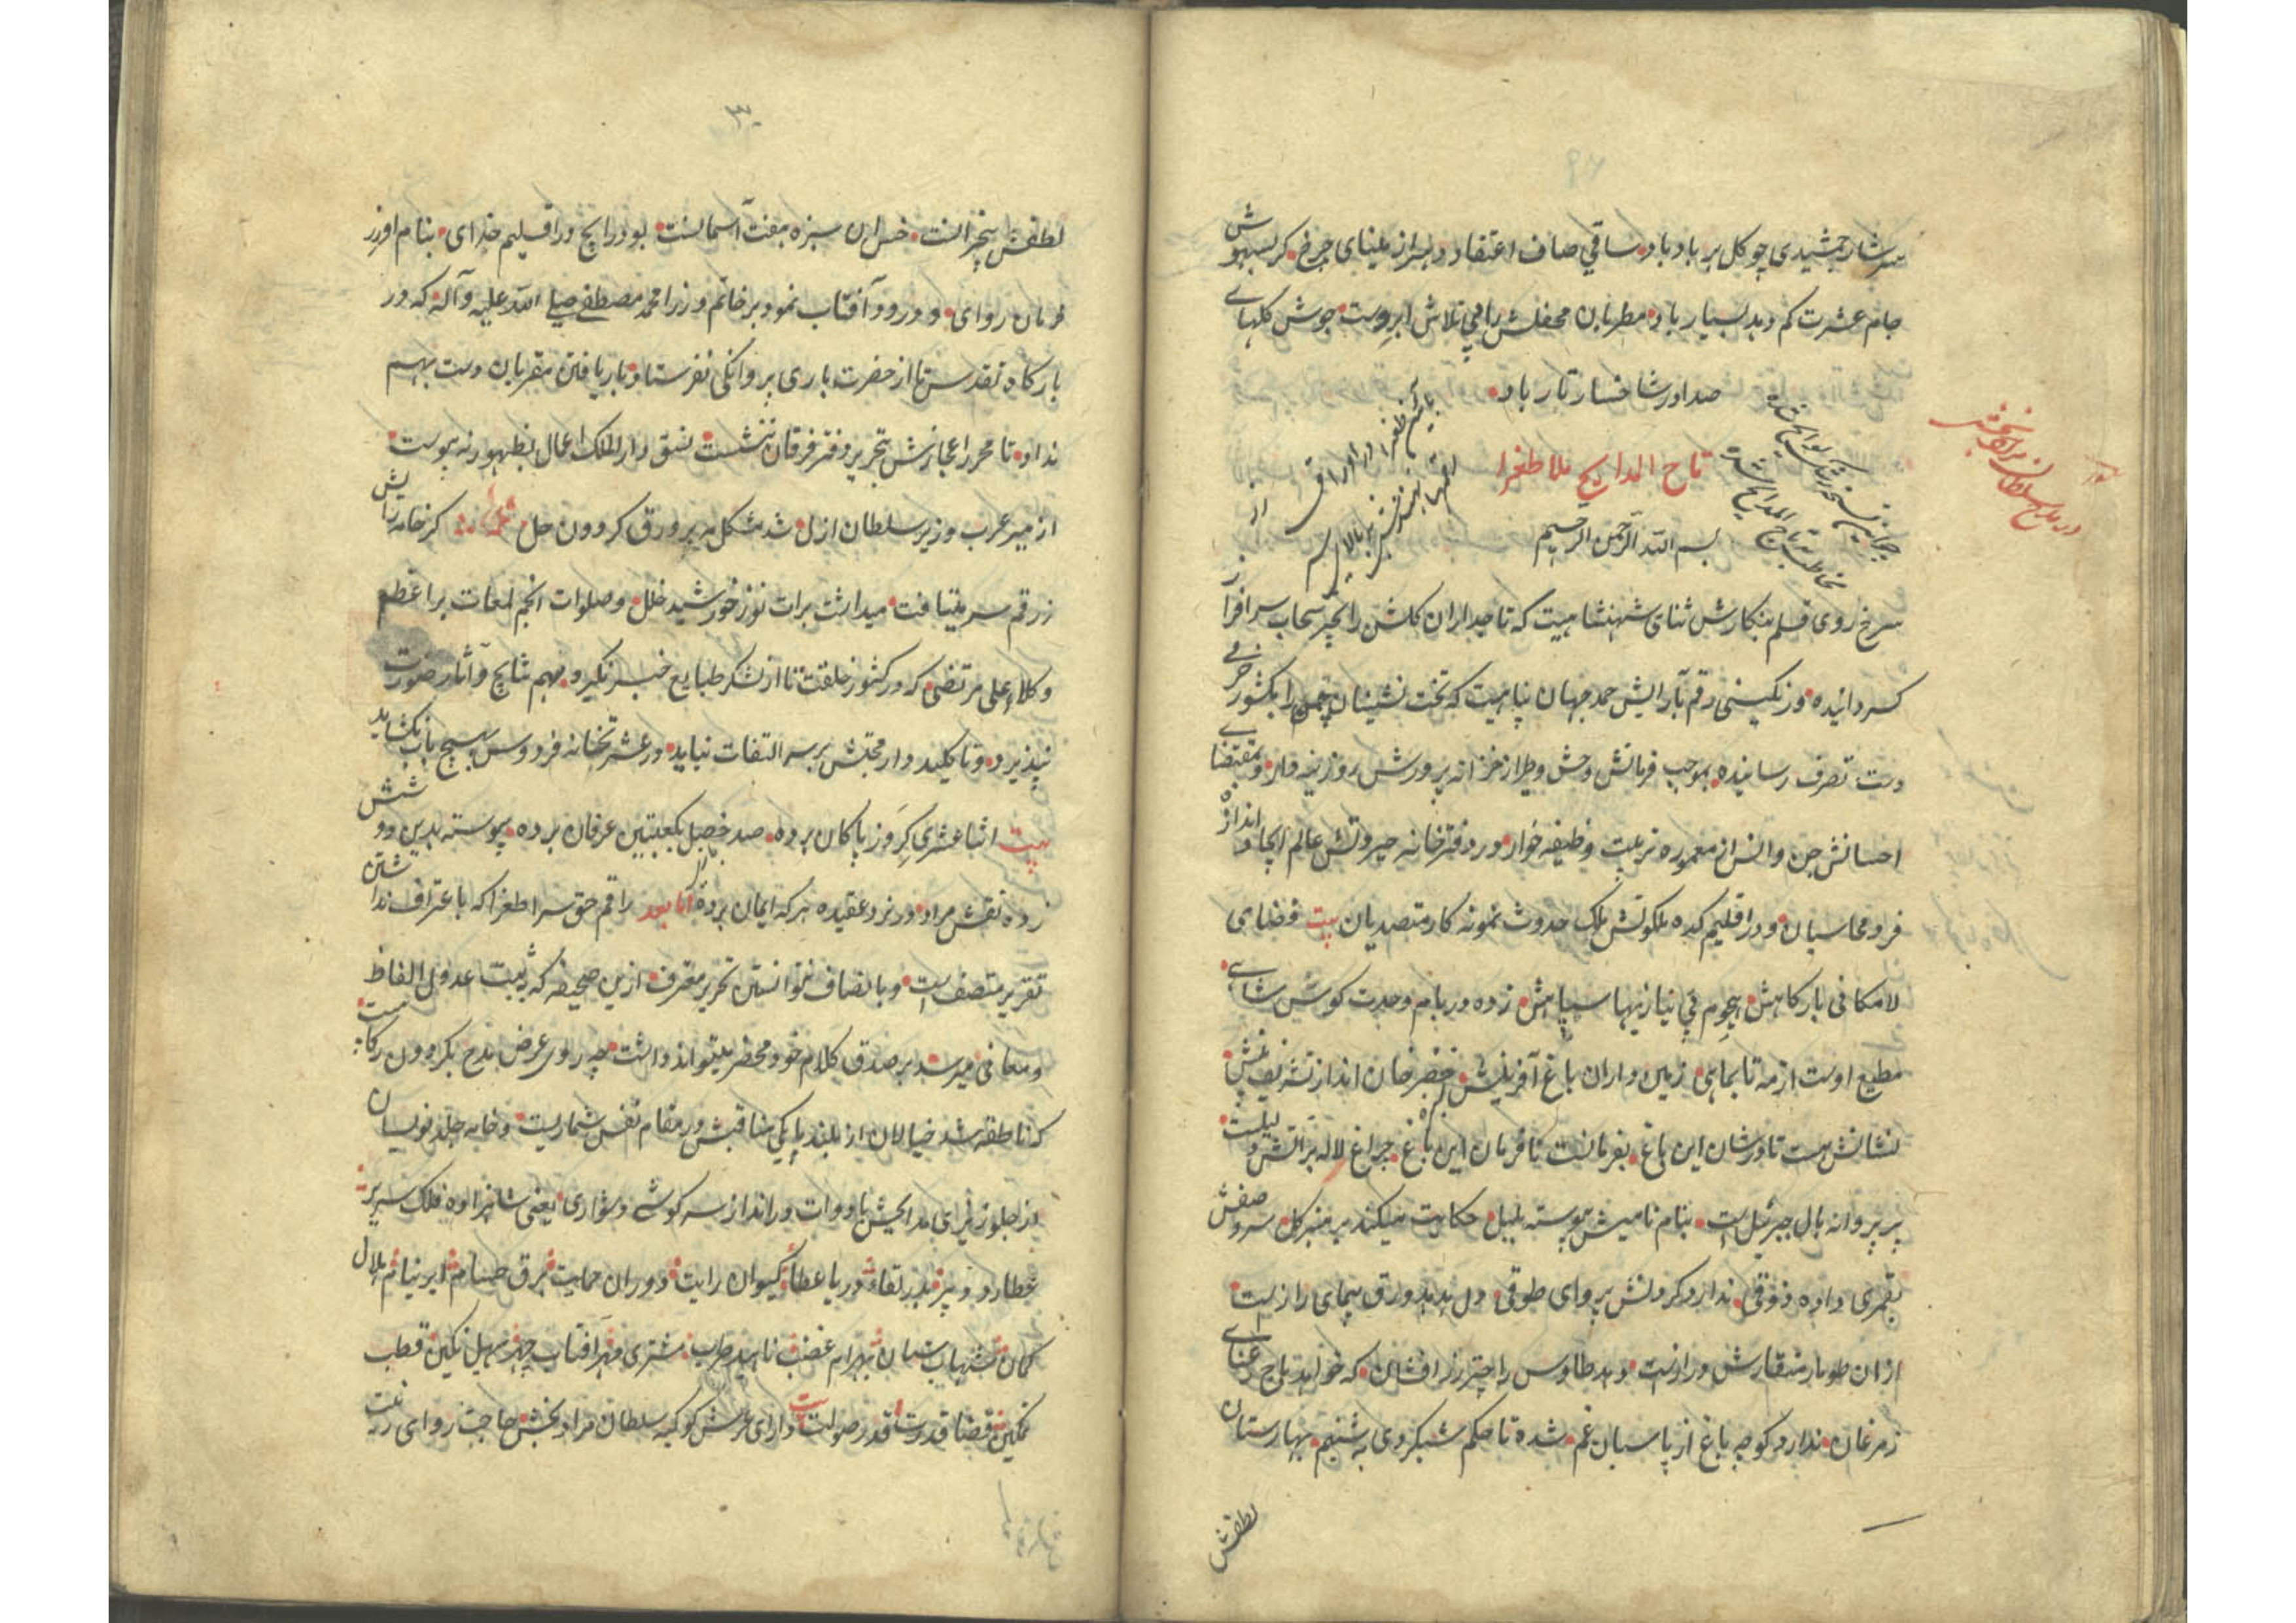 سرشار جمشیدی چو کل بر باد باد ساقی صاف اعتقاد دلبراز مینای چرخ کر بیهوش
جام عشرت کم دهد بسیار باد مطربان محفلش را هی تلاش ابروست جوش کلهای
صدا در شاخسار تار باد
تاج المدایح ملا طغرا
در مدح سلطان مراد بخش
بسم الله الرحمن الرحیم
سرخ روی قلم بنکارش ثنای شهنشاهیت که تاجداران کلشن را بچتر سحاب سرافراز
کردانیده و رنکینی رقم بآرایش حمد جهان پناهیت که تخت نشینان چمن را بکشور خرمی
دست تصرف رسانیده بموجب فرمانش وحش و طیر از خزانه پرورش روزینه دار و بمقتضای
احسانش جن و انس از معموره تربیت وظیفه خوار در دفترخانه جبروتش عالم ایجاد انداز
فرو محاسبان و در اقلیم کده ملکوتش ملک حدوث نمونه کار متصدیان بیت فضای
لامکانی بارکاهش هجوم بی نیازیها سپاهش زده در بام وحدت کوس شاهی
مطیع اوست از مه تا بماهی زمین داران باغ آفرینش خضر خان انداز تشریف
نشانش هست تا در شان این باغ بفرمانست نافرمان این باغ چراغ لاله بر آتش دلیلست
پر پروانه بال جبرئیل است بنام نامیش پیوسته بلبل حکایت میکند بر منبر کل سرو صفش
بقمری داده ذوقی ندارد کردنش پروای طوقی دل هدهد ورق پیمای رازست
ازان طومار منقارش درازست دهد طاوس را چتر زرافشان که خواهد باج رعنای
زمرغان ندارد کوچه باغ از پاسبان غم شده تا حکم شبکردی به شبنم بهارستان
لطفش
۳۰
لطفش بیخزانست خس ان سبزه هفت آسمانست بود رایج در اقلیم خدای بنام او زر
فرمان روای و درود آفتاب نمود بر خاتم وزرا محمد مصطفی صلی الله علیه وآله که در
بارکاه تقدس تا از حضرت باری پروانکی نفرستاد باریافتن مقربان دست بهم
نداد تا محرر اعجازش بتحریر دفتر فرقان ننشست نسق دارالملک اعمال بظهور نه پیوست
از میر عرب وزیر سلطان ازل شد مشکل هر ورق کردون حل کر خامه رایش
ز رقم سر میتافت میداشت برات نور خورشید خلل و صلوات انجم لمعات بر اعظم
وکلا علی مرتضی که در کشور خلقت تا از لشکر طبایع خبر نکیرد مهم نتایج و آثار صورت
نپذیرد و تا کلید دار محبتش بر سر التفات نیاید در عشرتخانه فردوس بهیچ باب نکشاید
بیت اثنا عشری کرو ز پاکان برده صد خصل بکعبتین عرفان برده پیوسته بدین دو شش
زده نقش مراد در نرد عقیده هر که ایمان برده اما بعد راقم حق سرا طغرا که باعتراف نداشتن
تقریر متصف است و بانصاف نتوانستن تحریر معترف ازین صحیفه که به ثبت عدول الفاظ
و معانی میرسد بر صدق کلام خود محضر میتواند داشت چه روی عرض مدح بکردون رکابیست
که ناطقه بلند خیالان از بلند پایکی مناقبش در مقام نفس شماریست و خامه جلد نویسان
از جلو ریزی مدایحش با دوات در انداز سرکوشی دشواری یعنی شاهزاده فلک سریر
عطارد دبیر بدر لقا دریا عطا کیوان رایت دوران حمایت برق حسام ابر نیام هلال
کمان شهاب سنان بهرام غضب ناهید طرب مشتری مهر آفتاب چهر سهیل نکین قطب
تمکین قضا قدرت قدر صولت دارای عرش کوکبه سلطان مراد بخش حاجت روای زینت